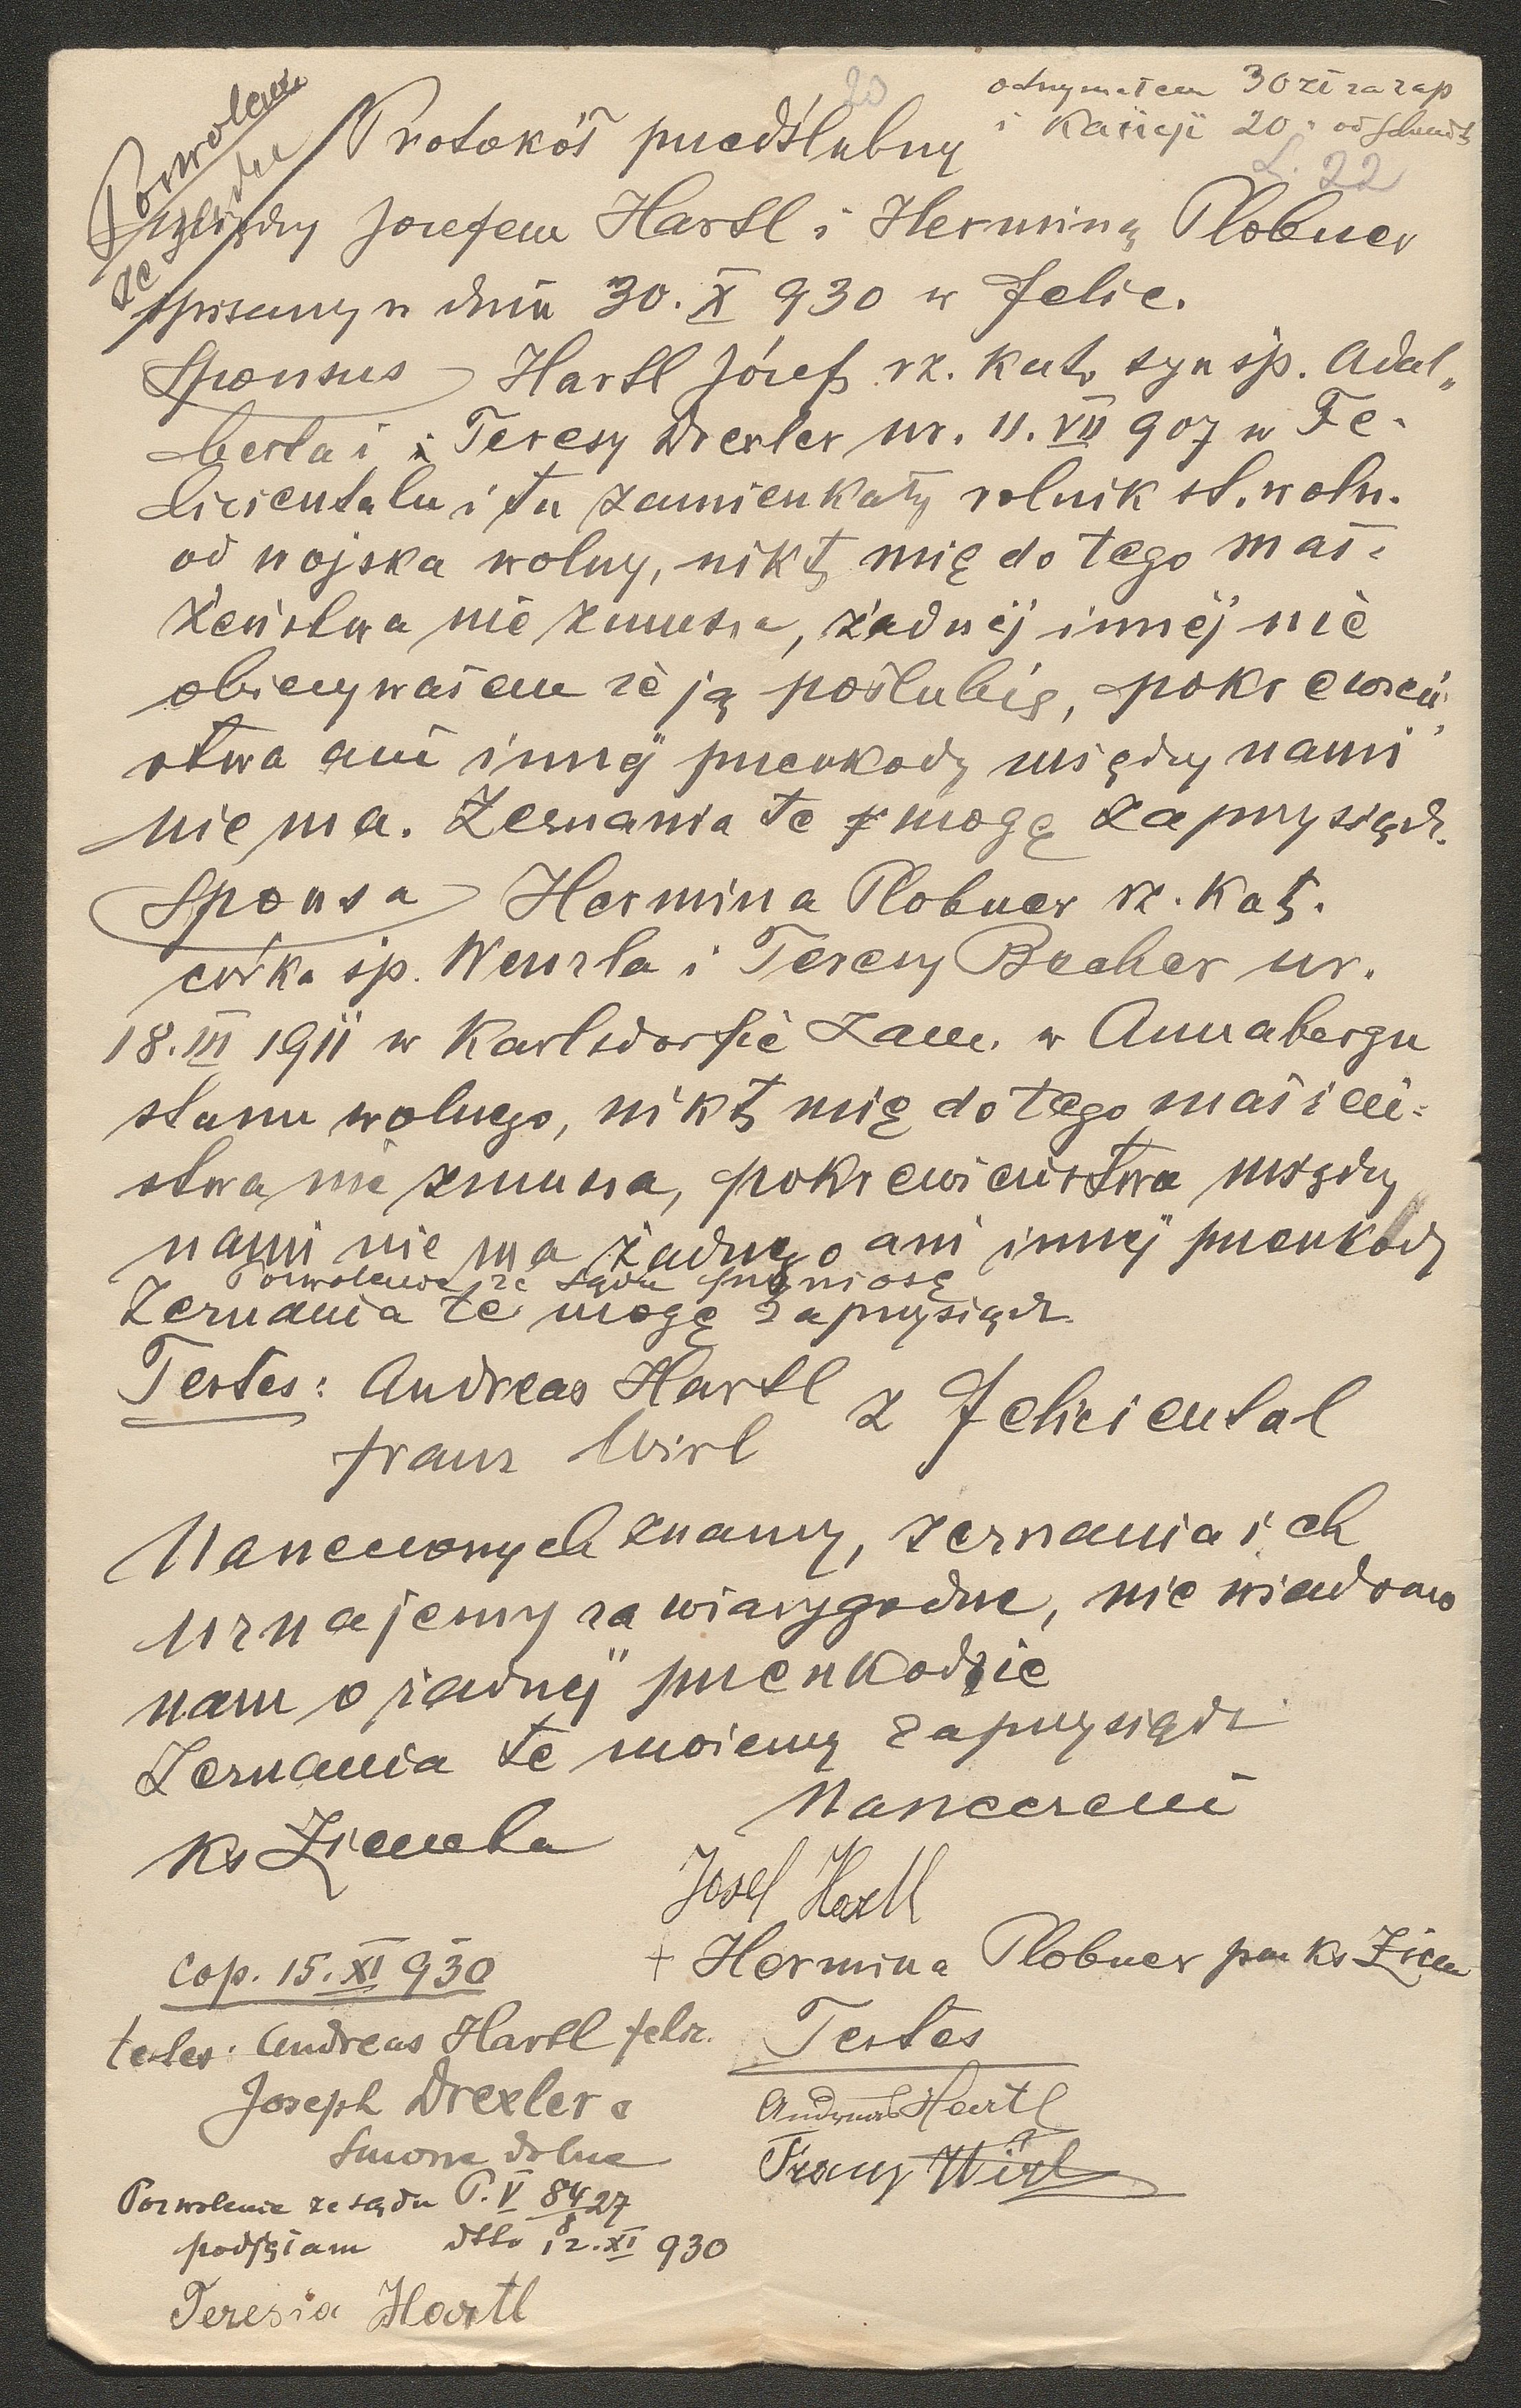 20
otrzymałem 30 zł za zap
i Kaucji 20 " od
L. 22
Pozwolenie
ze sądu
Protokół przedślubny
między Jozefem Hartl i Herminą Plobner
spisany w dniu 30. X 930 w Felic.
Sponsus Hartl Józef rz. kat. syn śp. Adal„
berta i Teresy Drexler ur. 11. VII 907 w Fe-
licientalu i tu zamieszkały rolnik st. woln.
od wojska wolny, nikt mię do tego mał=
żeństwa nie zmusza, żadnej innej nie
obiecywałem że ją poślubię, pokrewień„
stwa ani innej przeszkody między nami
nie ma. Zeznania te mogę zaprzysiądz.
Sponsa Hermina Plobner rz. kat.
córka śp. Wenzla i Teresy Becher ur.
18. III 1911 w Karlsdorfie zam. w Annabergu
stanu wolnego, nikt mię do tego małżeń=
stwa nie zmusza, pokrewieństwa między
nami nie ma żadnego ani innej przeszkody
Pozwolenie ze sądu przyniosę
Zeznania te mogę zaprzysiądz.
Testes: Andreas Hartl
z Feliciental
Franz Wirl
Narzeczonych znamy, zeznania ich
uznajemy za wiarygodne, nie wiadomo
nam o żadnej przeszkodzie
Zeznania te możemy zaprzysiądz
ks Ziemba
Narzeczeni
Josef Hartl
+ Hermina Plobner prz ks Ziem
cop. 15. XI 930
testes: Andreas Hartl felic.
Joseph Drexler z
Smorze dolne
Testes
Andreas Hartl
Franz Wirl
Pozwolenie ze sądu P. V 84/8 27
podjęłam dtto 12. XI 930
Teresia Hartl